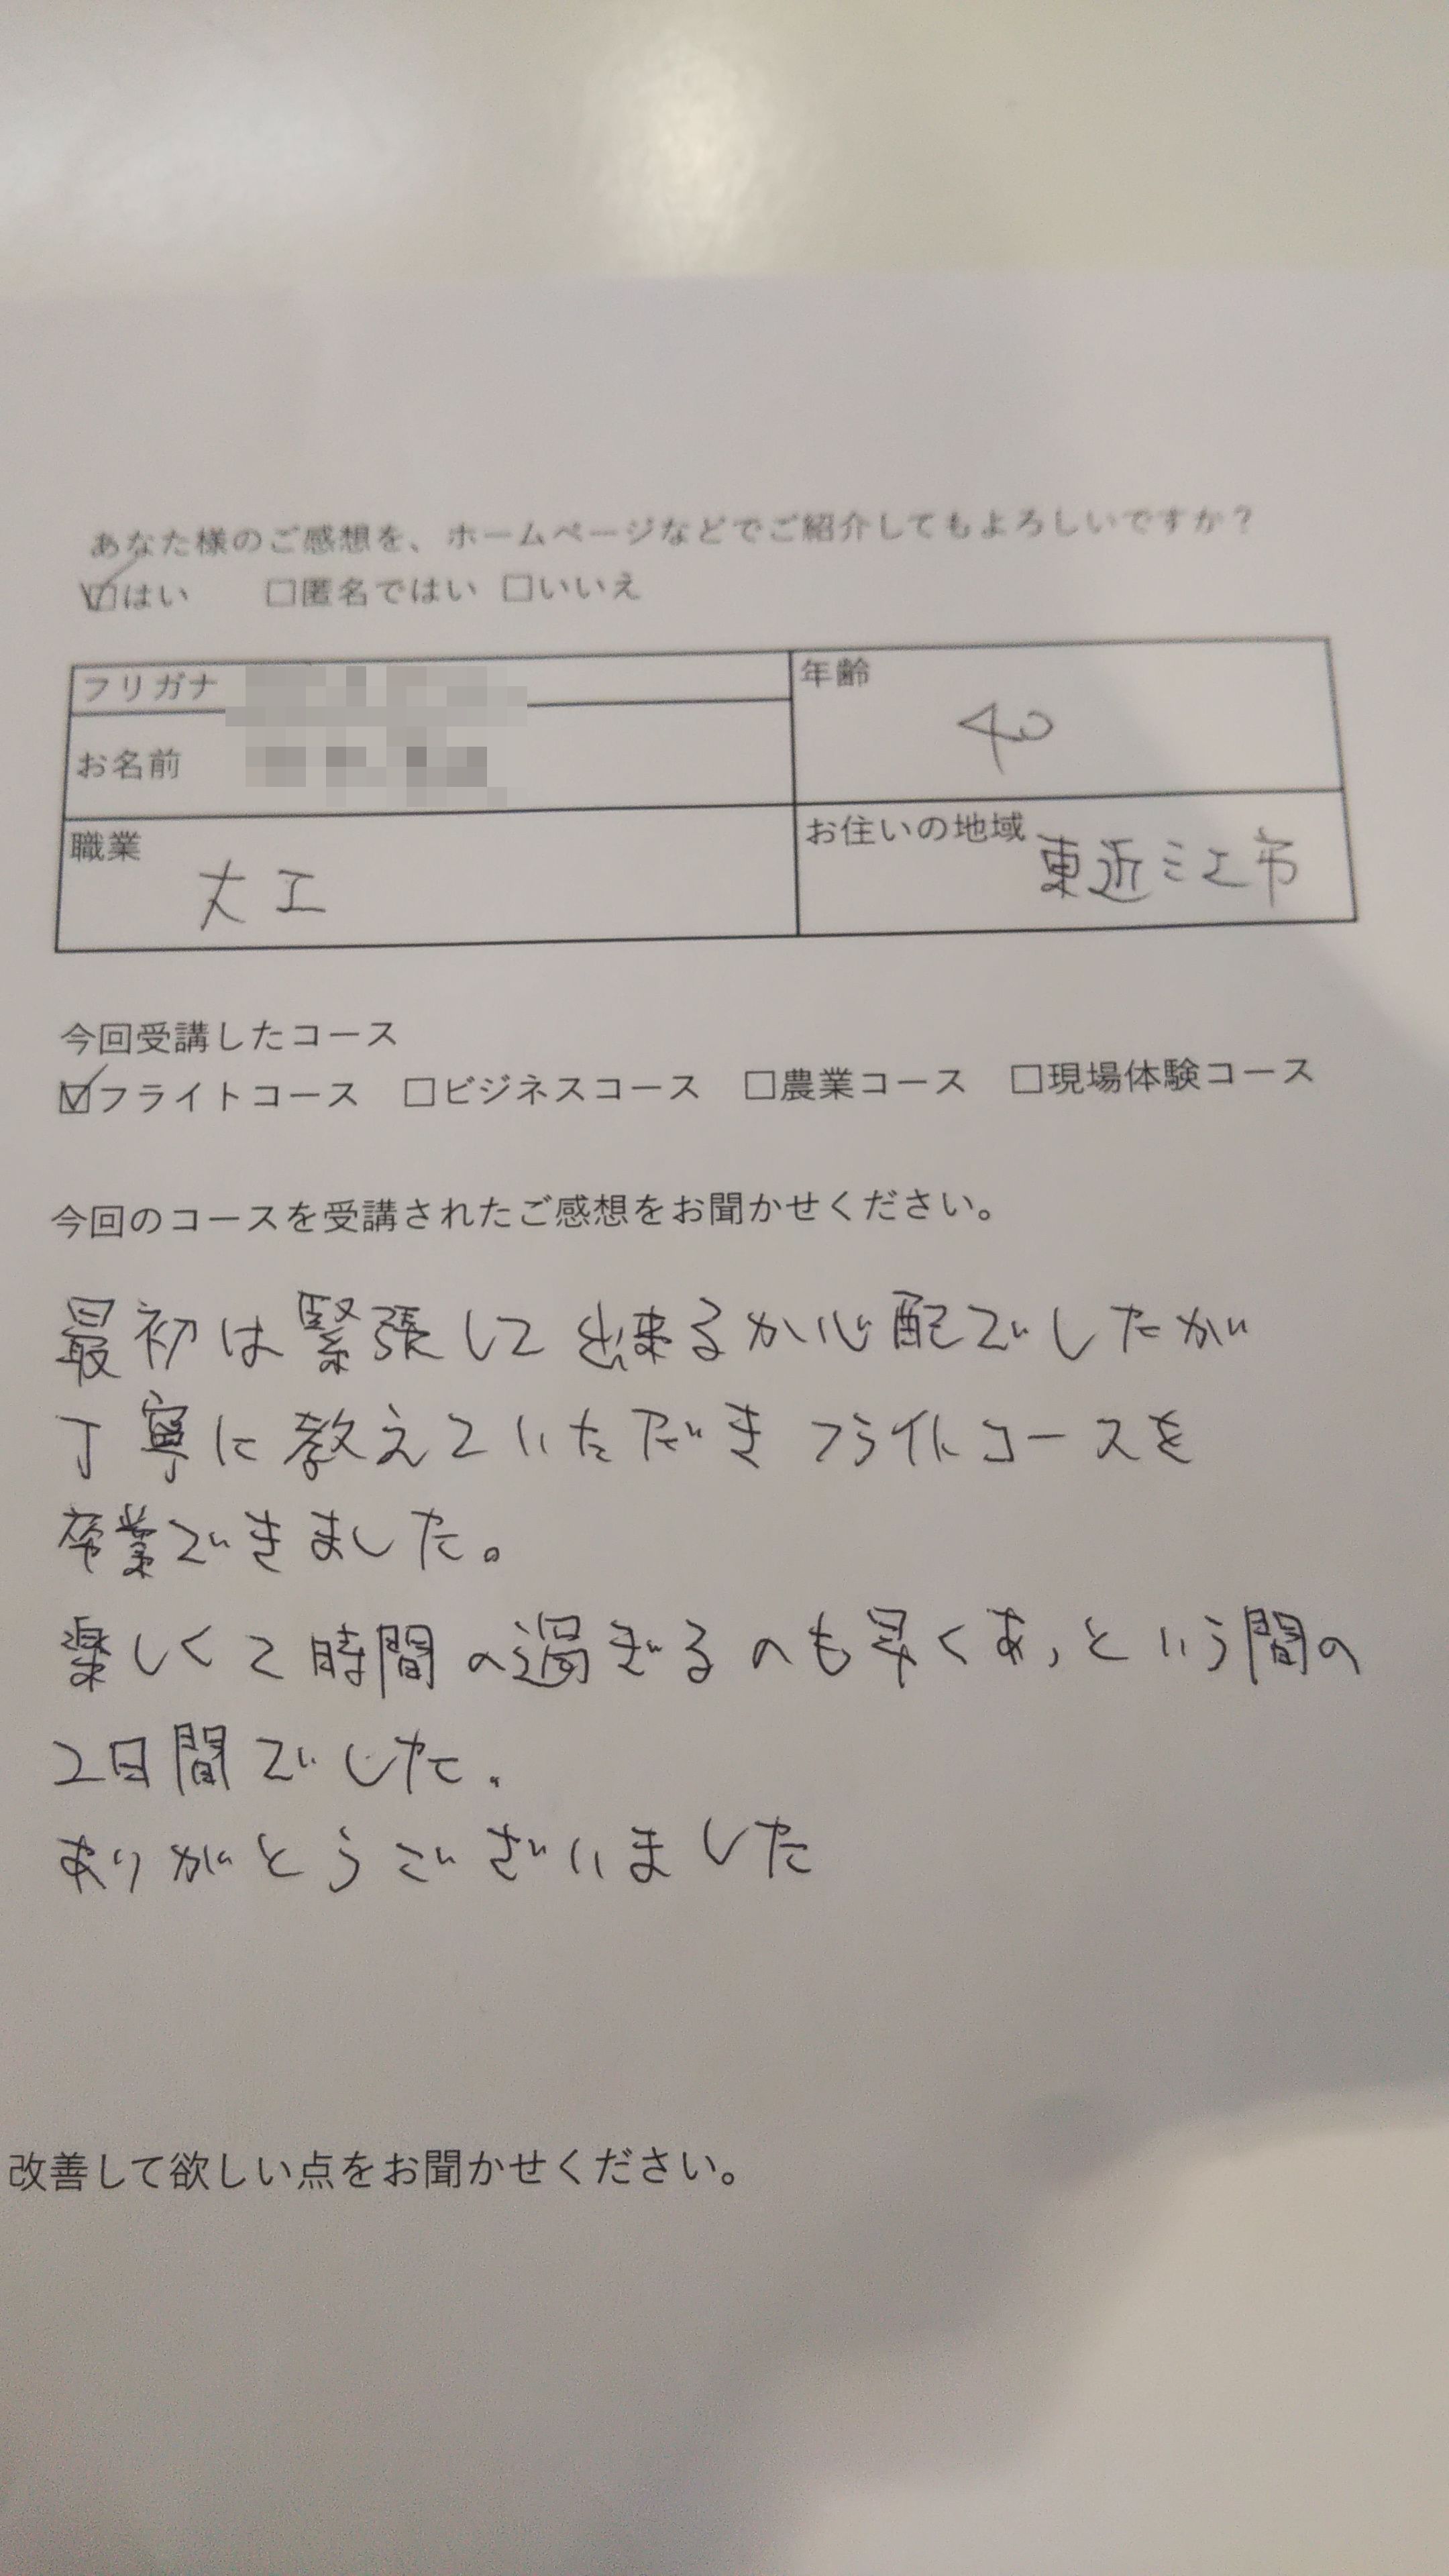 あなた様のご感想を、ホームページなどでご紹介してもよろしいですか？
☑はい □匿名ではい □いいえ
フリガナ
年齢
40
お名前
職業
大工
お住いの地域
東近江市
今回受講したコース
☑フライトコース □ビジネスコース □農業コース □現場体験コース
今回のコースを受講されたご感想をお聞かせください。
最初は緊張して出来るか心配でしたが
丁寧に教えていただき フライトコースを
卒業できました。
楽しくて時間の過ぎるのも早くあっという間の
2日間でした.
ありがとうございました
改善して欲しい点をお聞かせください。